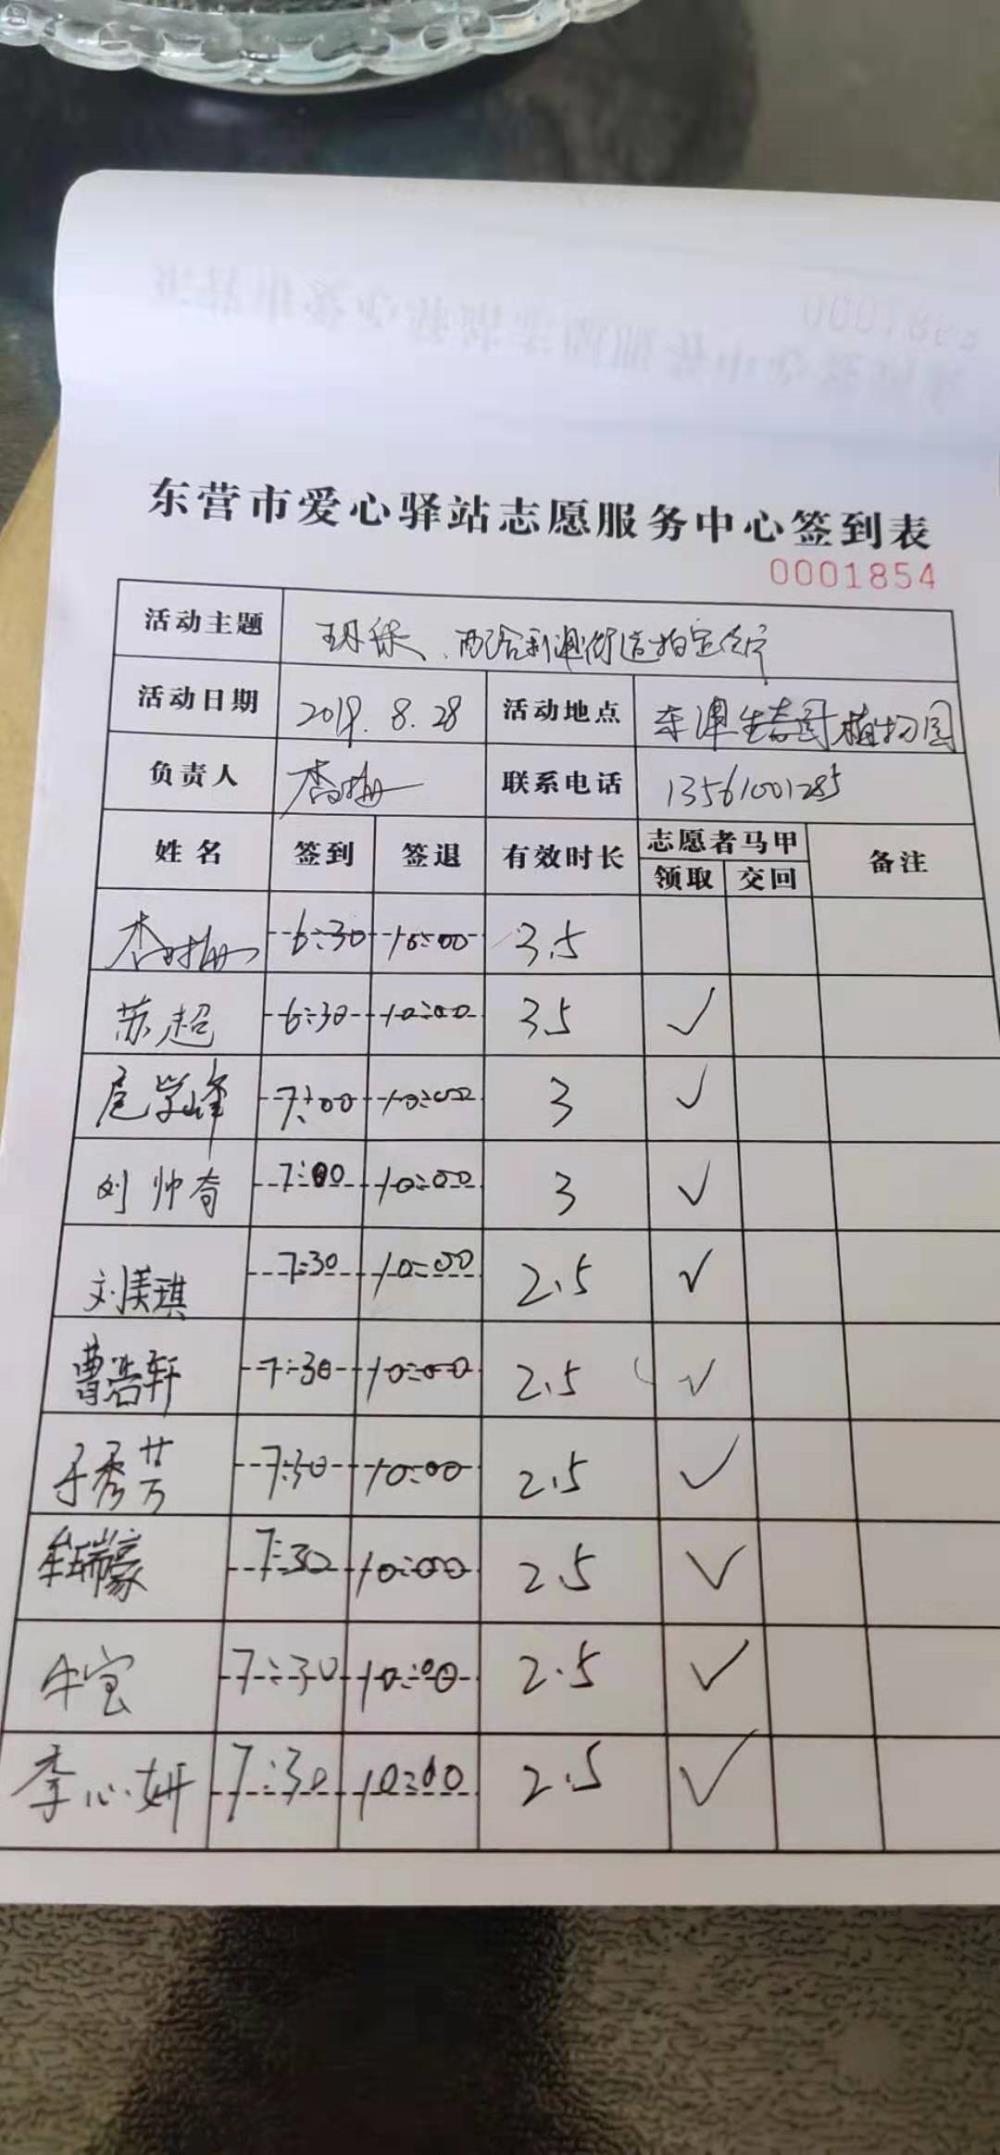 东营市爱心驿站志愿服务中心签到表
0001854
活动主题 环保、配合利津街道拍宣传片
活动日期 2019.8.28 活动地点 东津生态园植物园
负责人 李梅 联系电话 13561001285
姓名 签到 签退 有效时长 志愿者马甲 备注
领取 交回
6:30 10:00 3.5
苏超 6:30 10:00 3.5 ✓
7:00 10:00 3 ✓
刘帅奇 7:00 10:00 3 ✓
刘美琪 7:30 10:00 2.5 ✓
曹浩轩 7:30 10:00 2.5 ✓
于秀芳 7:30 10:00 2.5 ✓
牟瑞豪 7:30 10:00 2.5 ✓
牛宝 7:30 10:00 2.5 ✓
李心妍 7:30 10:00 2.5 ✓